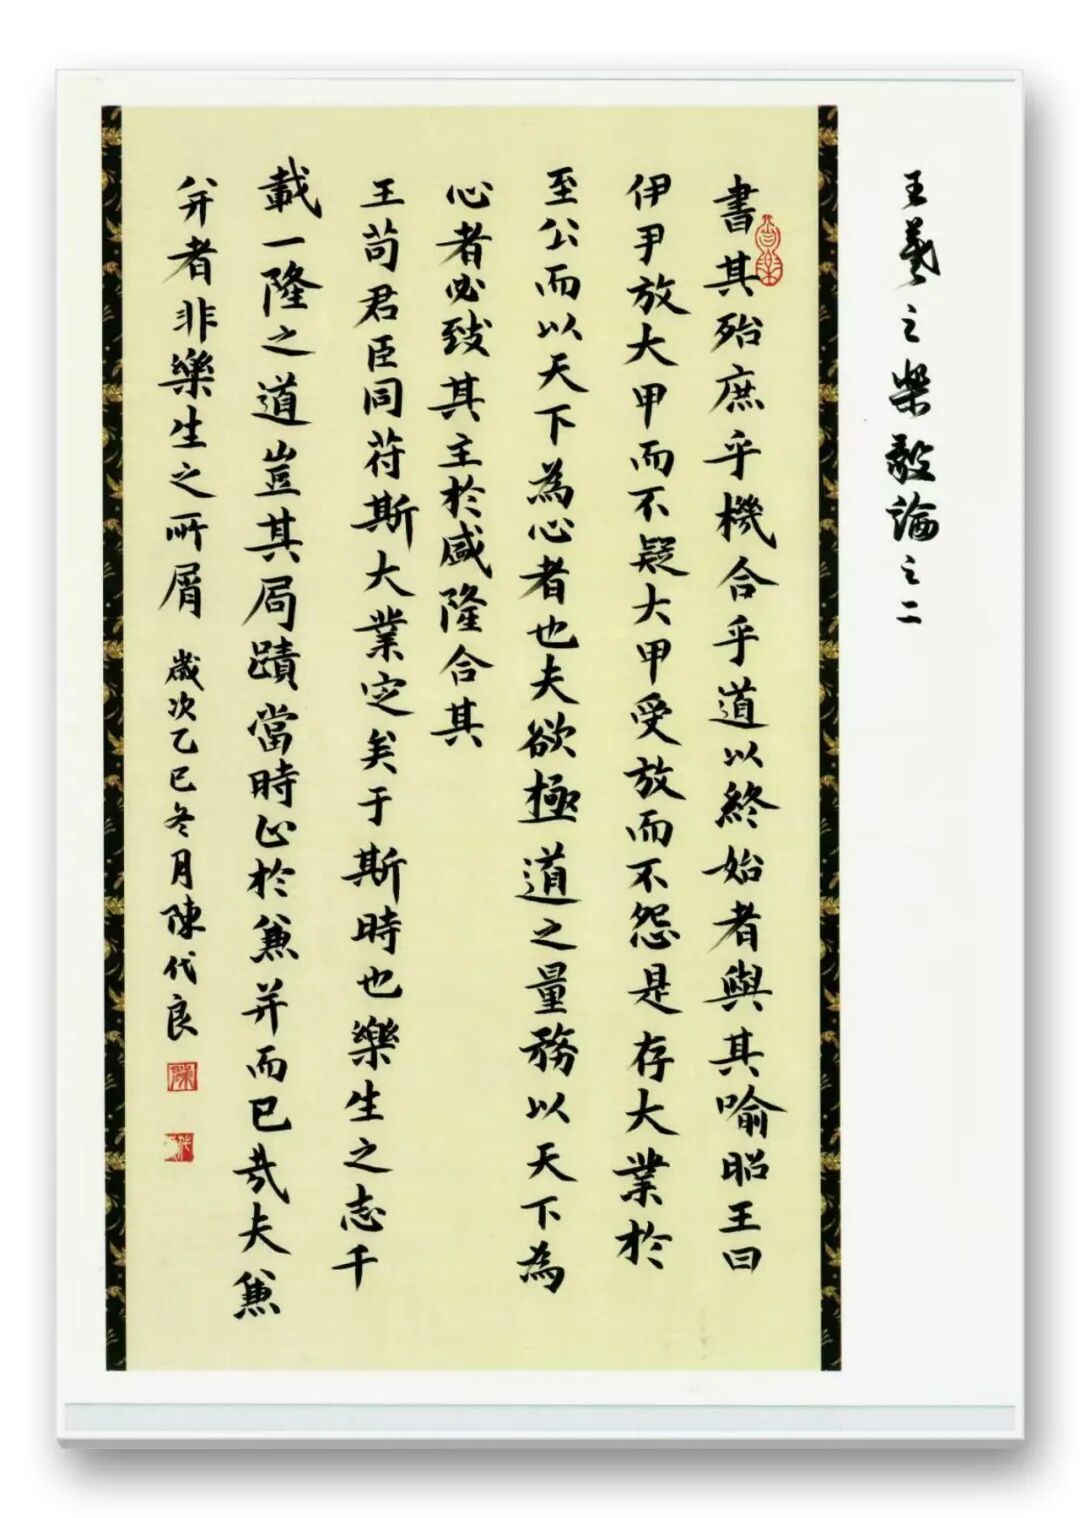 王羲之樂毅論之二
書其殆庶乎機合乎道以終始者與其喻昭王曰
伊尹放大甲而不疑大甲受放而不怨是存大業於
至公而以天下為心者也夫欲極道之量務以天下為
心者必致其主於盛隆合其
王苟君臣同符斯大業定矣于斯時也樂生之志千
載一隆之道豈其局蹟當時止於兼并而已哉夫兼
并者非樂生之所屑
歲次乙巳冬月陳代良